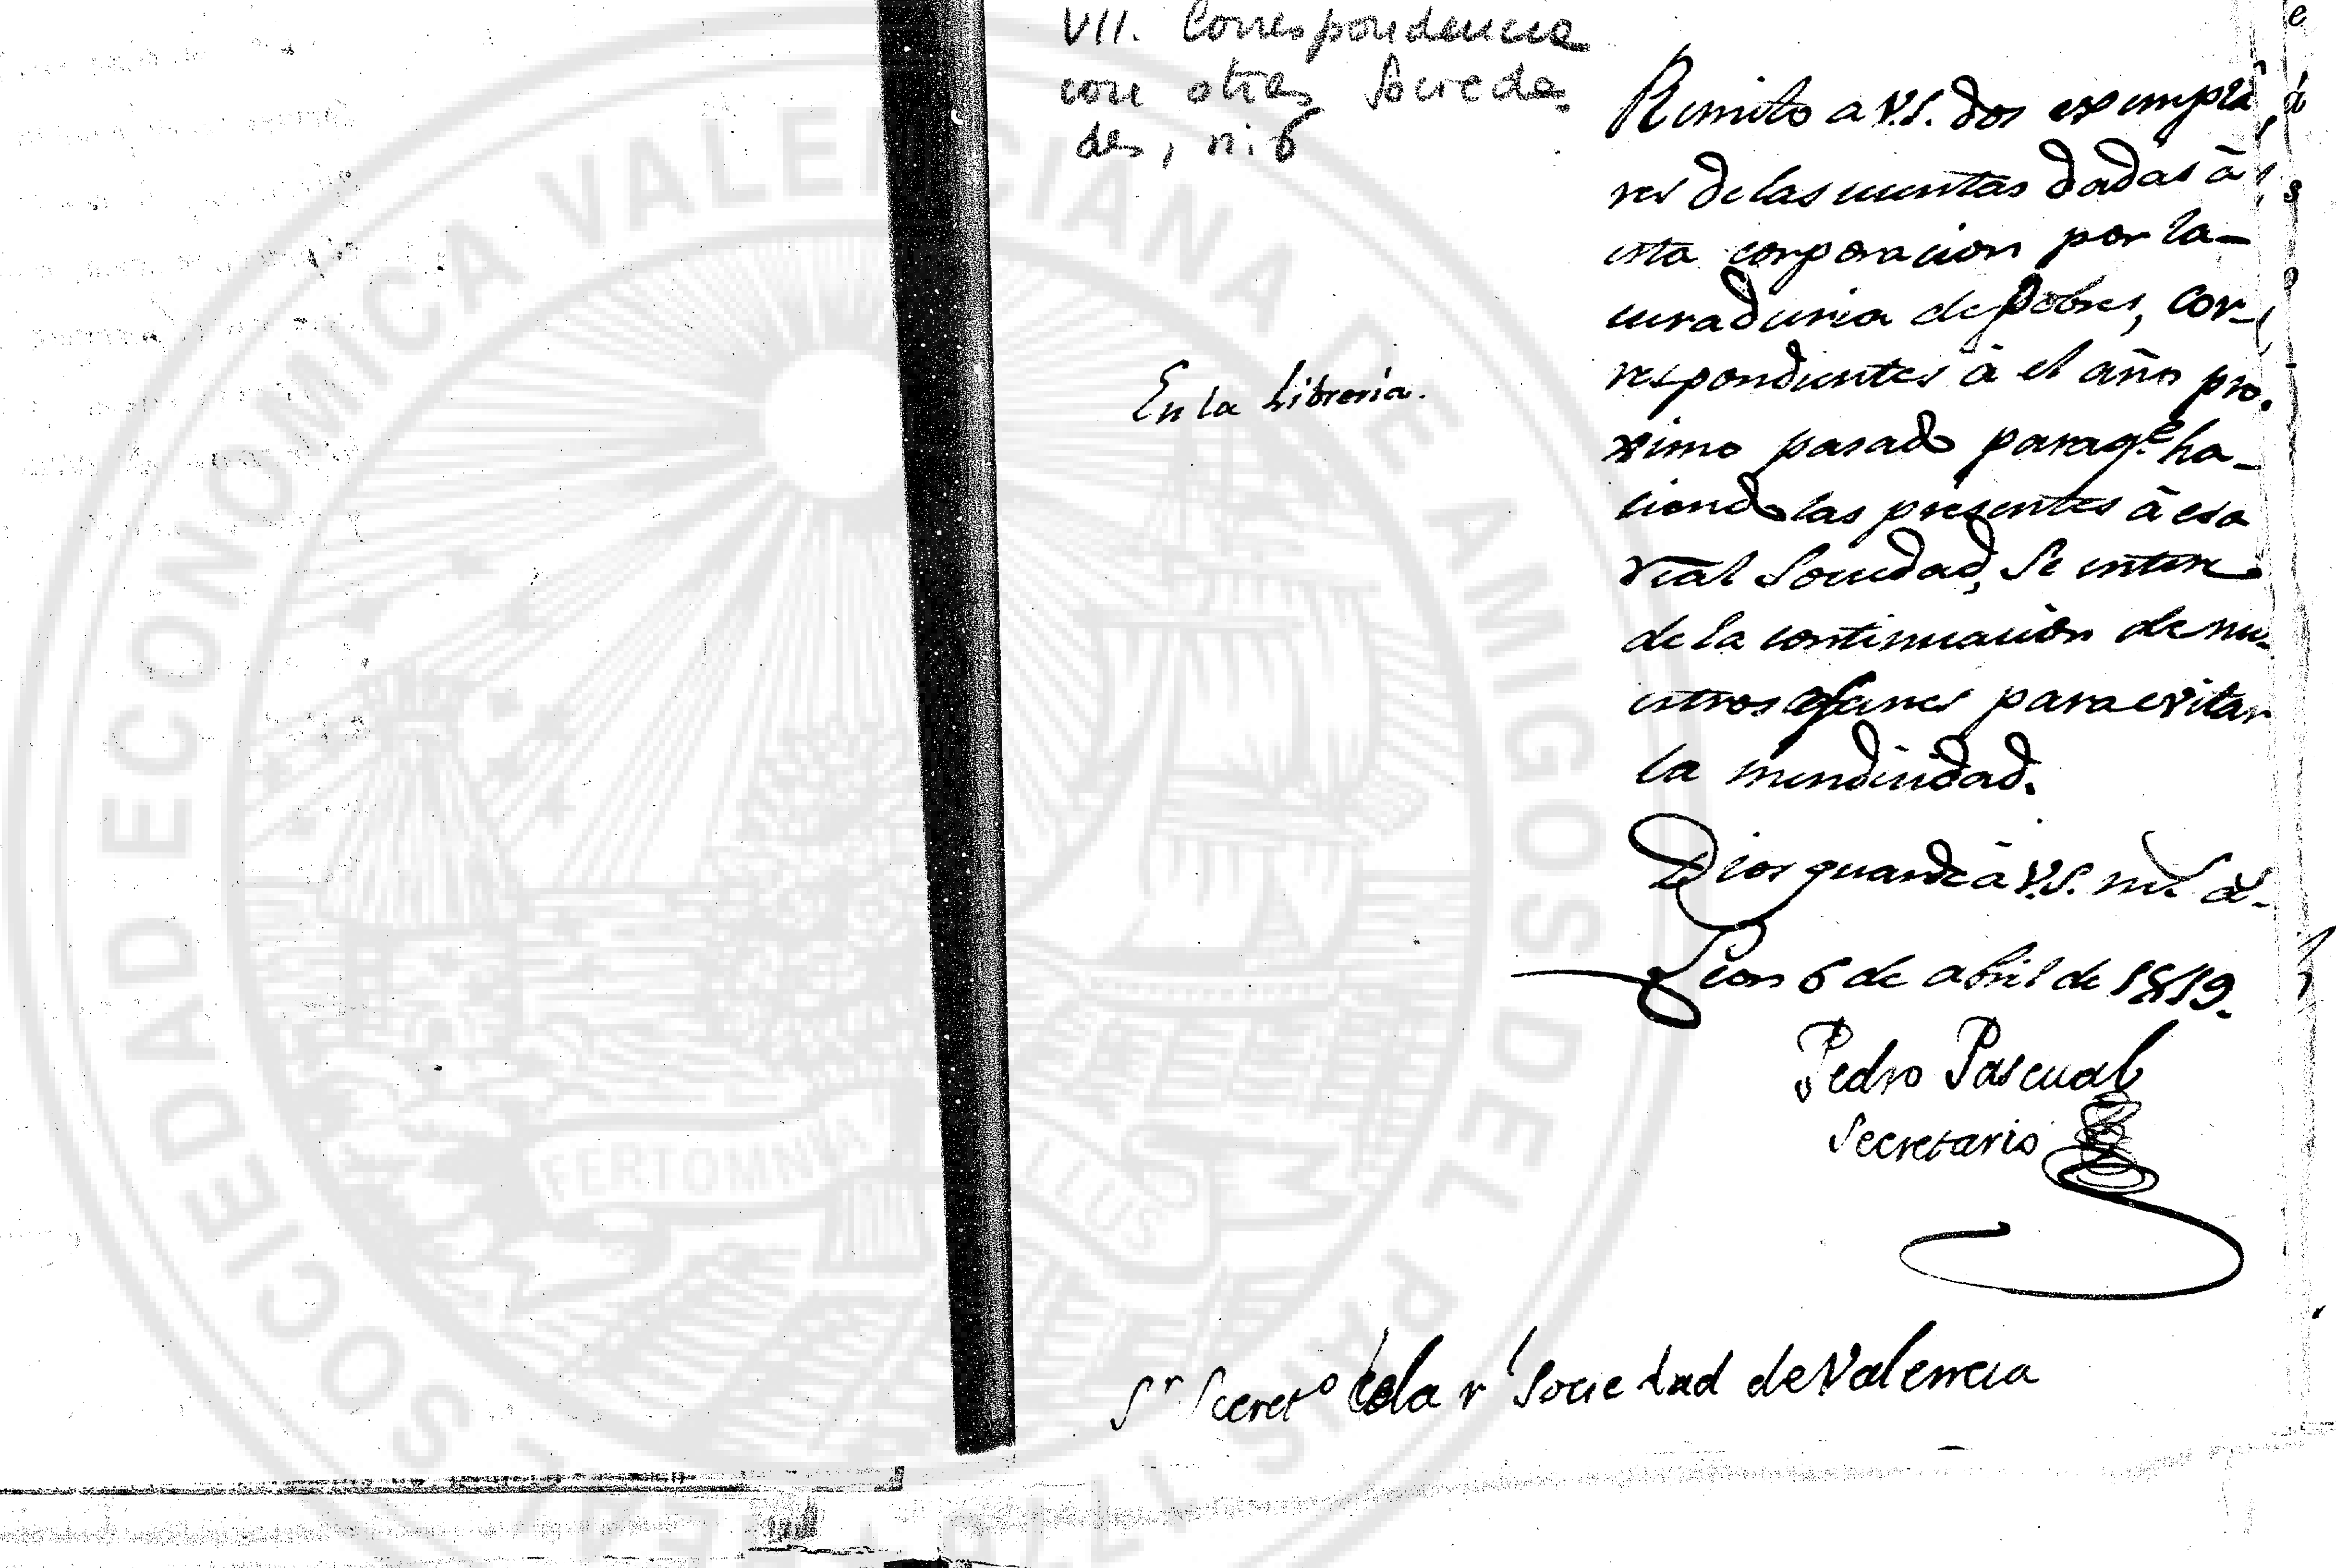 VII. Correspondencia
con otras Socieda
des, n. 6
En la Libreria.
Remito a V.S. dos exempla
res de las cuentas dadas à
esta corporacion por la
curaduria de pobres, cor-
respondientes à el año pro
ximo pasado para q.e ha-
ciendolas presentes à esa
real Sociedad, se entere
de la continuacion de nu-
estros afanes para evitar
la mendicidad.
Dios guarde à V.S. m.s a.s
Leon 6 de abril de 1819.
Pedro Pascual
Secretario
Sr Secreto de la rl Sociedad de Valencia
SOCIEDAD ECONOMICA VALENCIANA DE AMIGOS DEL PAIS
FERTOMNIA